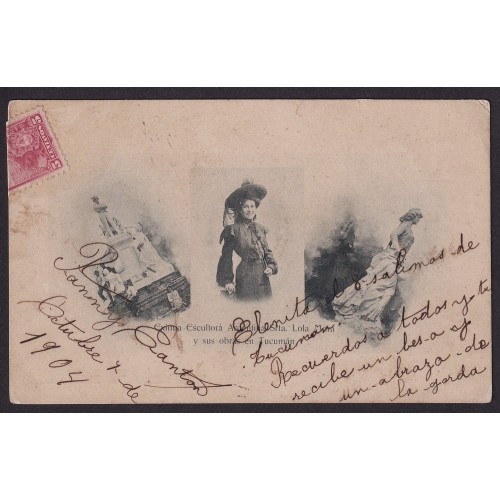 Eximia Escultora Argentina Srta. Lola Mora
y sus obras en Tucumán
Fanny Cantón
Octubre 7 de
1904
Elenita el 8 salimos de
Tucuman
Recuerdos a todos y tu
recibe un beso y
un abrazo de
la gorda